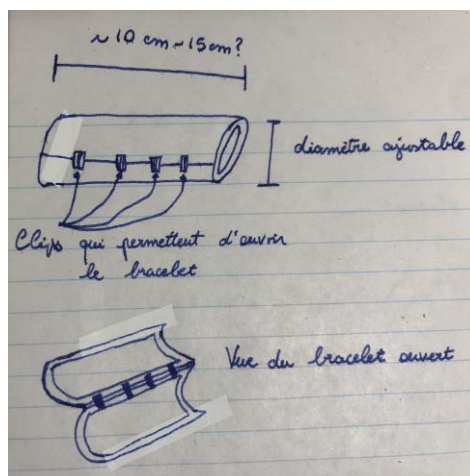 ~ 10 cm ~ 15 cm?
diamètre ajustable
Clips qui permettent d'ouvrir
le bracelet
Vue du bracelet ouvert